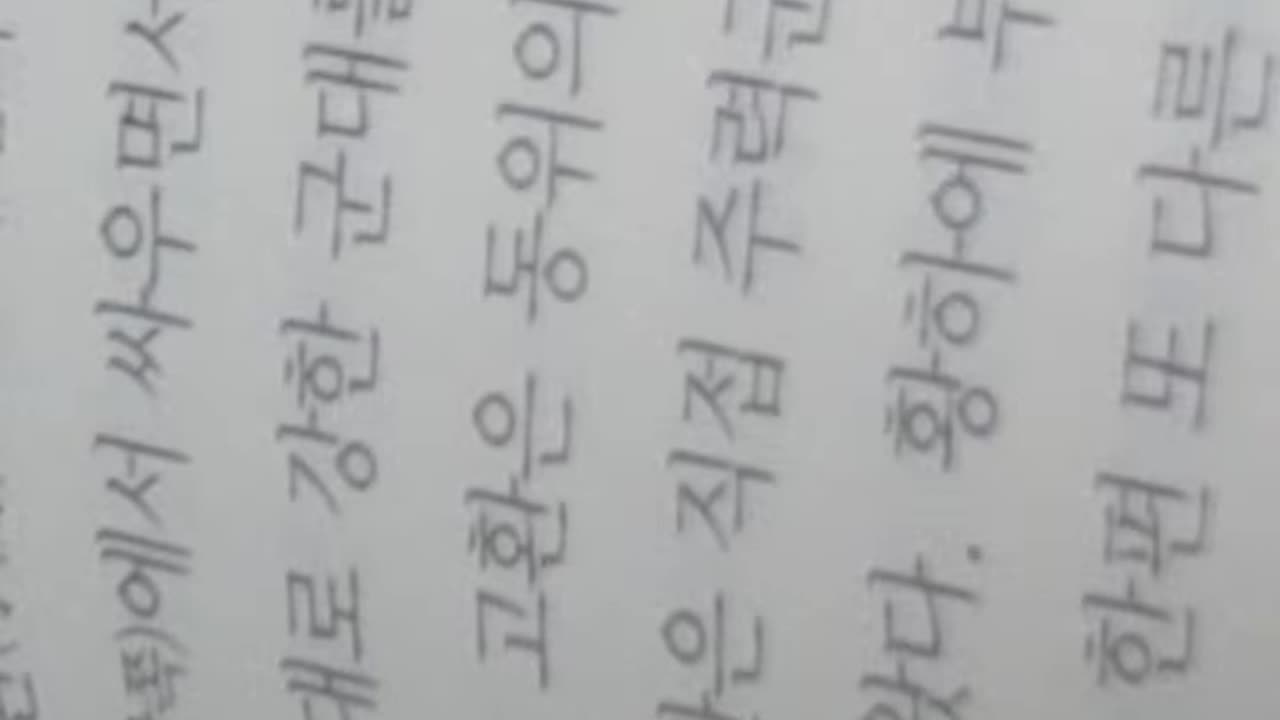 쪽)에서 싸우면서
대로 강한 군대를
고환은 동위의
은 직접 주력군
았다. 황하에 부
한편 또 다른